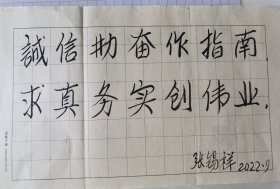 誠信勤奋作指南.
求真务实创伟业.
张锡祥
2022.9